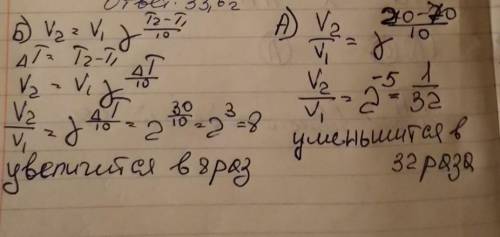 Ответ. 33,6 г
Б) V₂ = V₁ γ^((T₂-T₁)/10)
ΔT = T₂-T₁
V₂ = V₁ γ^(ΔT/10)
V₂/V₁ = γ^(ΔT/10) = 2^(30/10) = 2³ = 8
увеличится в 8 раз
А) V₂/V₁ = γ^((20-70)/10)
V₂/V₁ = 2⁻⁵ = 1/32
уменьшится в
32 раза